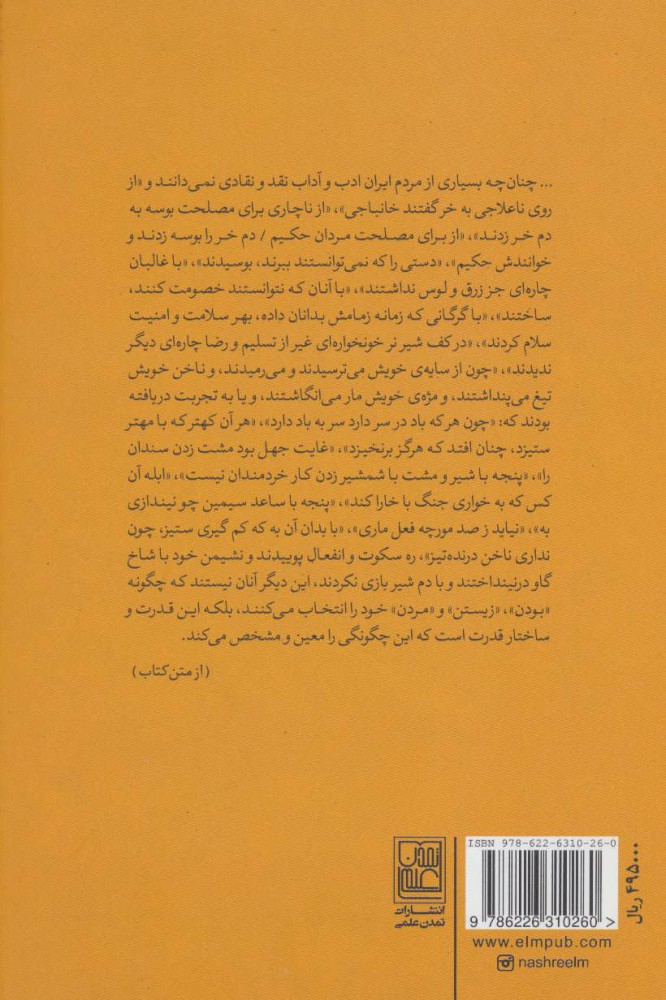 ... چنان‌چه بسیاری از مردم ایران ادب و آداب نقد و نقادی نمی‌دانند و «از
روی ناعلاجی به خر گفتند خانباجی»، «از ناچاری برای مصلحت بوسه به
دم خر زدند»، «از برای مصلحت مردان حکیم / دم خر را بوسه زدند و
خوانندش حکیم»، «دستی را که نمی‌توانستند ببرند، بوسیدند»، «با غالبان
چاره‌ای جز زرق و لوس نداشتند»، «با آنان که نتوانستند خصومت کنند،
ساختند»، «با گرگانی که زمانه زمامش بدانان داده، بهر سلامت و امنیت
سلام کردند»، «در کف شیر نر خونخواره‌ای غیر از تسلیم و رضا چاره‌ای دیگر
ندیدند»، «چون از سایه‌ی خویش می‌ترسیدند و می‌رمیدند، و ناخن خویش
تیغ می‌پنداشتند، و مژه‌ی خویش مار می‌انگاشتند، و یا به تجربت دریافته
بودند که: «چون هر که باد در سر دارد سر به باد دارد»، «هر آن کهتر که با مهتر
ستیزد، چنان افتد که هرگز برنخیزد»، «غایت جهل بود مشت زدن سندان
را»، «پنجه با شیر و مشت با شمشیر زدن کار خردمندان نیست»، «ابله آن
کس که به خواری جنگ با خارا کند»، «پنجه با ساعد سیمین چو نیندازی
به»، «نیاید ز صد مورچه فعل ماری»، «با بدان آن به که کم گیری ستیز، چون
نداری ناخن درنده‌تیز»، ره سکوت و انفعال پوییدند و نشیمن خود با شاخ
گاو درنینداختند و با دم شیر بازی نکردند، این دیگر آنان نیستند که چگونه
«بودن»، «زیستن» و «مردن» خود را انتخاب می‌کنند، بلکه این قدرت و
ساختار قدرت است که این چگونگی را معین و مشخص می‌کند.
(از متن کتاب)
تمدن علمی
انتشارات
تمدن علمی
ISBN 978-622-6310-26-0
9 786226 310260 >
www.elmpub.com
nashreelm
۴۹۵۰۰۰ ریال